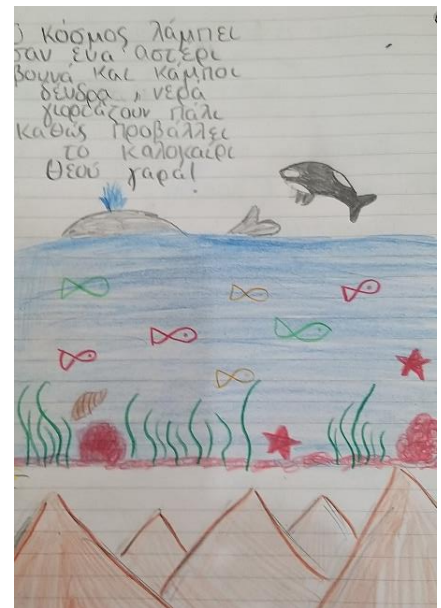 Ο κόσμος λάμπει
σαν ένα αστέρι
βουνά και κάμποι
δένδρα, νερά
γιορτάζουν πάλι
καθώς προβάλλει
το καλοκαίρι
Θεού χαρά!